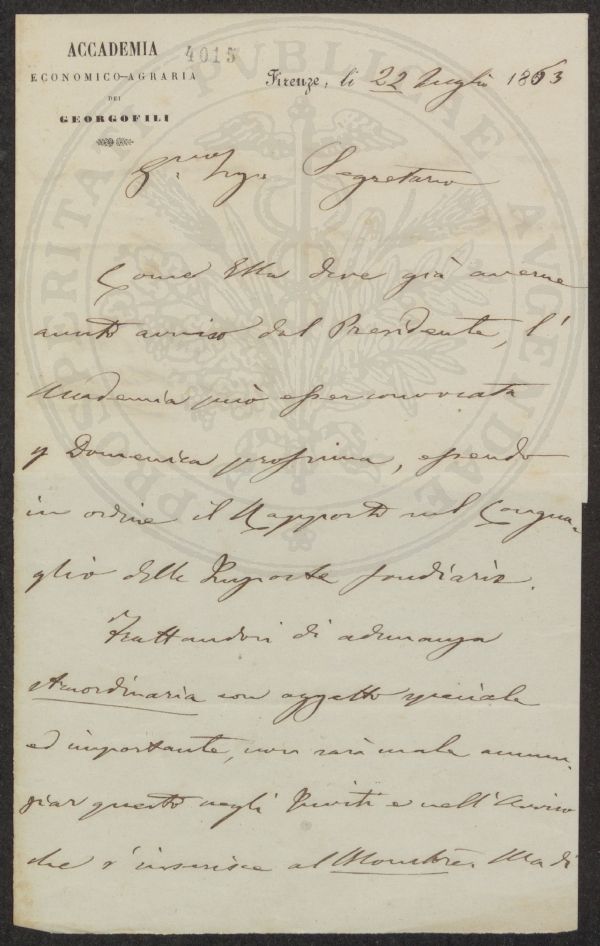 ACCADEMIA
ECONOMICO-AGRARIA
DEI
GEORGOFILI
4015
Firenze, li 22 Luglio 1863
Segretario
Come Ella deve già averne
avuto avviso dal Presidente, l'
Accademia può esser convocata
p Domenica prossima, essendo
in ordine il Rapporto sul Congua-
glio delle Imposte fondiarie.
Trattandosi di adunanza
straordinaria con oggetto speciale
ed importante, non sarà male annun-
ziar questo negli Inviti e nell'Avviso
che s'inserisce al Monitore. Ma di
PROSPERITATI PUBLICAE AUGENDAE